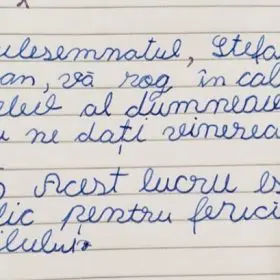 ulesemnatul, Ștefa
an, vă rog în cal
elev al dumneau
u ne dați vinerea
Acest lucru es
lic pentru ferici
ilului.